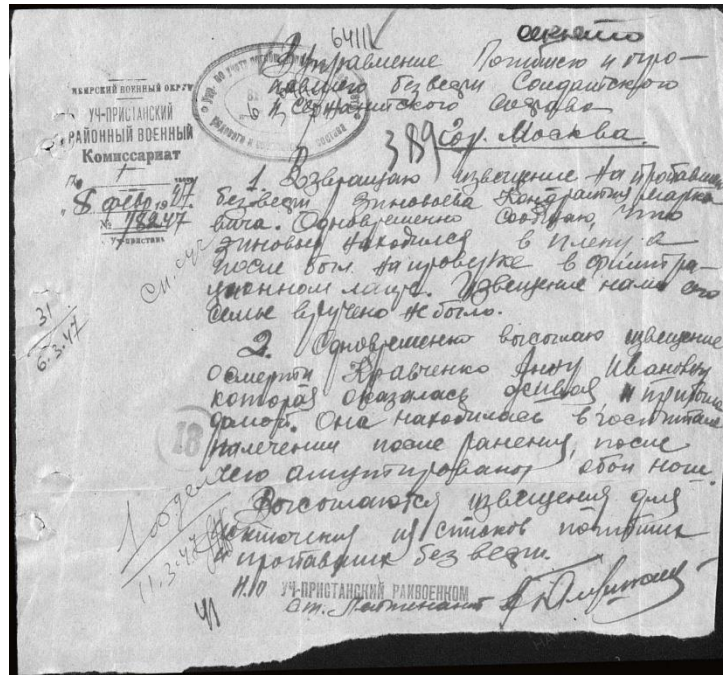 6411к
учтено
В управление Погибшего и про-
павшего безвести Солдатского
и Сержантского состава
гор. Москва.
389
СИБИРСКИЙ ВОЕННЫЙ ОКРУГ
УЧ-ПРИСТАНСКИЙ
РАЙОННЫЙ ВОЕННЫЙ
Комиссариат
1
часть
"8" февр 1947
№ 78247
Уч-пристань
1. Возвращаю извещение на пропавшего
безвести Зиновьева Кондратия Марко-
вича. Одновременно сообщаю, что
Зиновьев находился в плену а
после был на проверке в фильтра-
ционном лагере. Извещение нами его
семье вручено не было.
2. Одновременно высылаю извещение
о смерти Кравченко Анну Ивановну
которая оказалась живая и прибыла
домой. Она находилась в госпитале
на лечении после ранения, после
чего ампутированы обои ноги.
Высылаются извещения для
исключения из списков погибших
и пропавших без вести.
31
6.3.47
18
1 отдел
11.3.47
41
УЧ-ПРИСТАНСКИЙ РАЙВОЕНКОМ
ст. Лейтенант